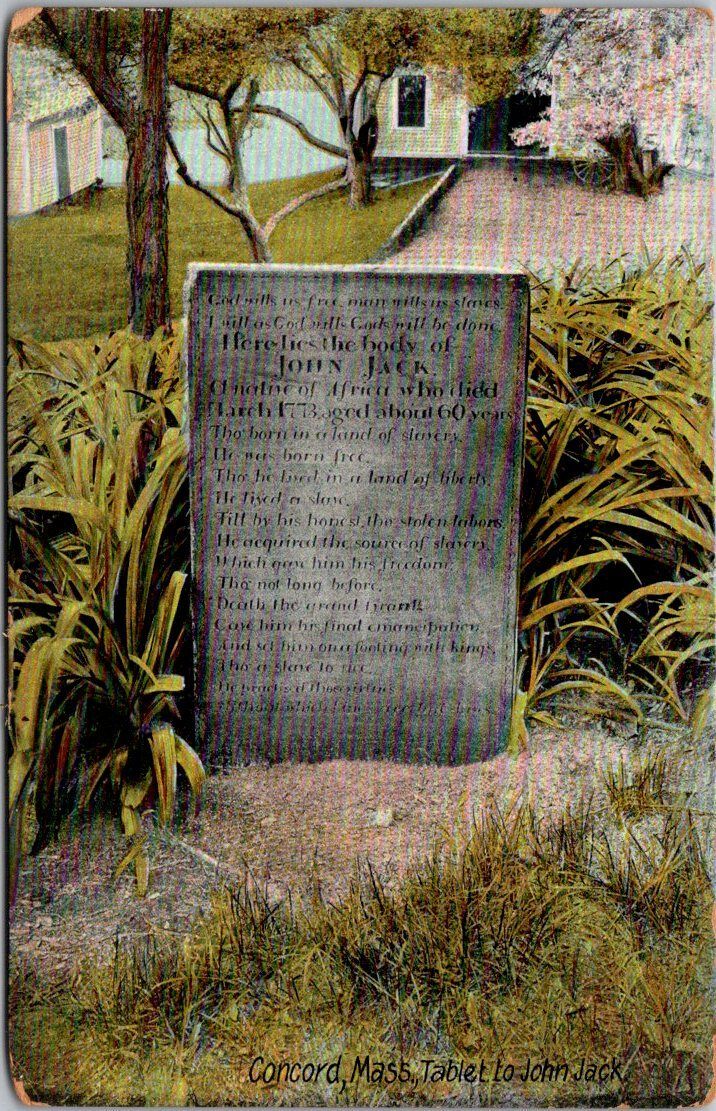 God wills us free, man wills us slaves.
I will as God wills Gods will be done.
Here lies the body of
JOHN JACK
A native of Africa who died
March 1773, aged about 60 years
Tho' born in a land of slavery,
He was born free.
Tho' he lived in a land of liberty,
He lived a slave,
Till by his honest, tho' stolen labors,
He acquired the source of slavery,
Which gave him his freedom,
Tho' not long before,
Death the grand tyrant,
Gave him his final emancipation,
And set him on a footing with kings,
Tho' a slave to vice
He practised those virtues
Without which kings are but slaves.
Concord, Mass., Tablet to John Jack.